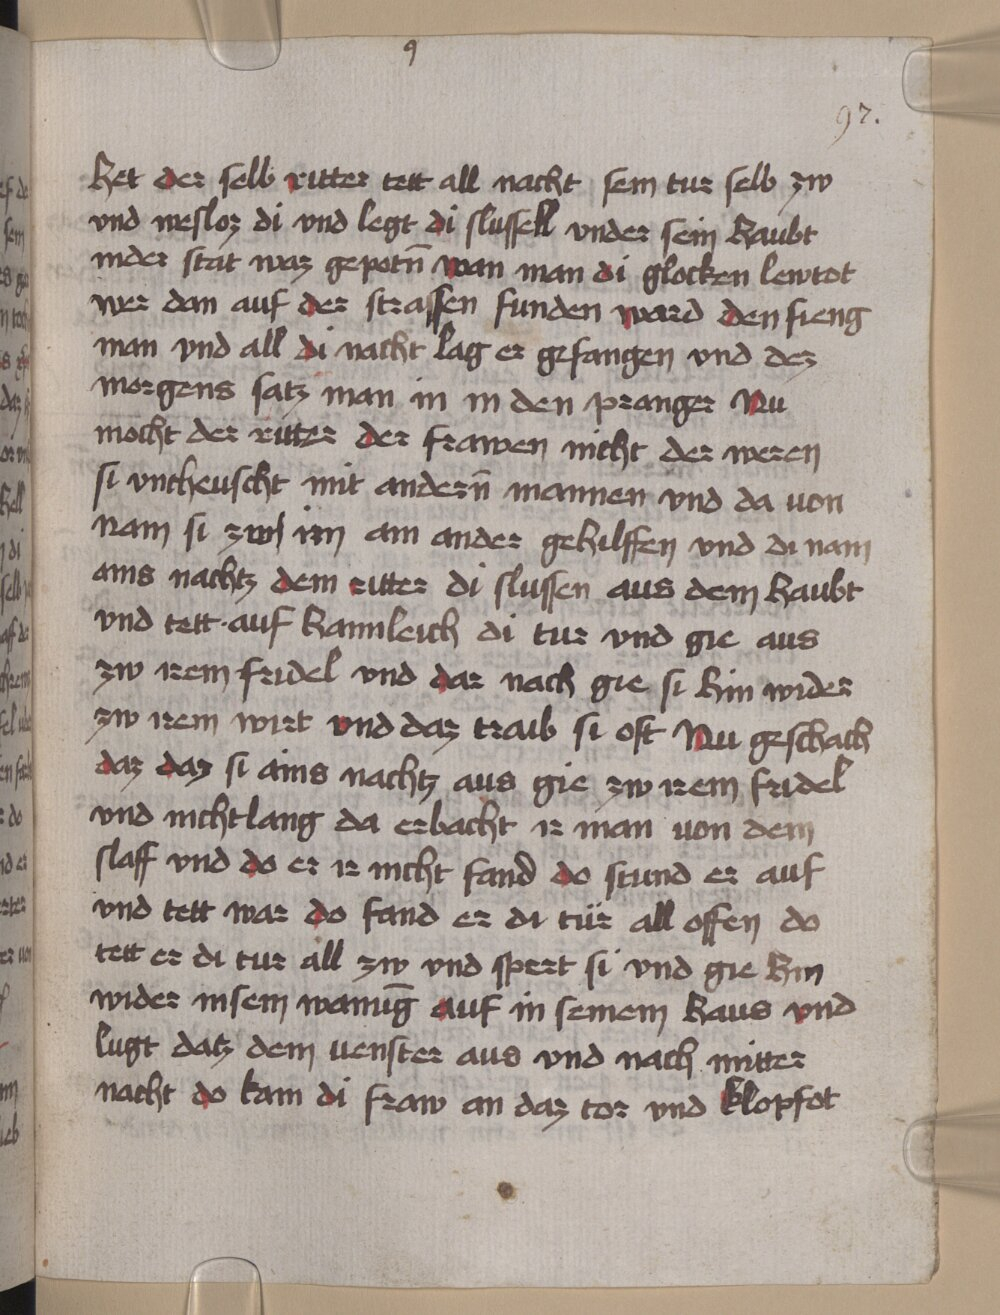 97.
het der selb ritter tett all nacht sein tur selb zw
vnd vresloz di vnd legt di slussell vnder sein haubt
inder stat waz gepotn̄ wan man di glocken lewtot
wer dan auf der strassen funden ward den fieng
man vnd all di nacht lag er gefangen vnd dez
morgens satz man in in den pranger Nu
mocht der ritter der frawen nicht der weren
si vncheuscht mit andern̄ mannen vnd da von
nam si zw im ain ander gehilffen vnd di nam
ains nachtz dem ritter di slussen aus dem haubt
vnd tett auf hamleich di tur vnd gie aus
zw irem fridel vnd dar nach gie si hin wider
zw irem wirt vnd daz traib si oft Nu geschach
daz daz si ains nachtz aus gie zw irem fridel
vnd nicht lang da erbacht ir man von dem
slaff vnd do er ir nicht fand do stund er auf
vnd tett war do fand er di tür all offen do
tett er di tur all zw vnd spert si vnd gie hin
wider in sein wanūg auf in seinem haus vnd
lugt datz dem venster aus vnd nach mitter
nacht do kam di fraw an daz tor vnd klopfot